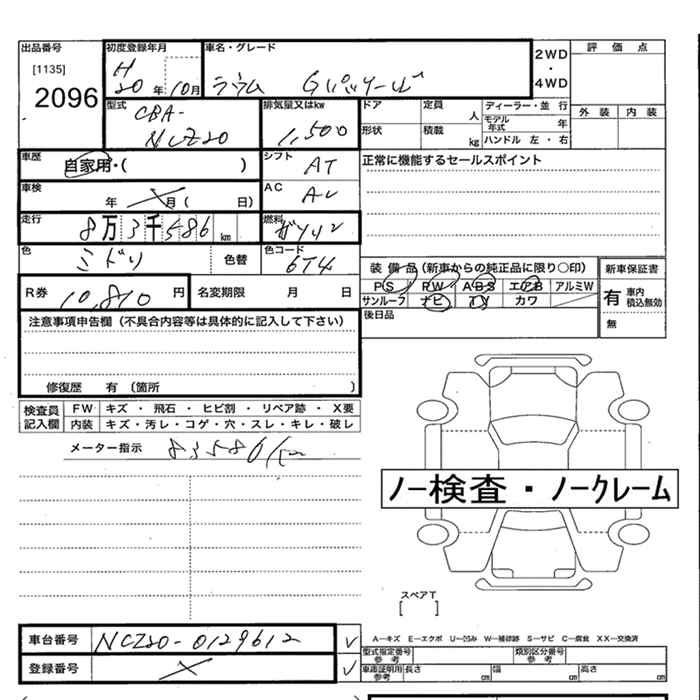 出品番号 初度登録年月 車名・グレード 2WD 評価点
[1135] H
2096 20年 10月 ラウム Gパッケージ ・ 4WD
型式 排気量又はkw ドア 定員 人 ディーラー・並行 外装 内装
CBA- モデル年式 年
NCZ20 1,500 形状 積載 kg ハンドル 左・右
車歴 自家用・( ) シフト AT 正常に機能するセールスポイント
車検 年 月 ( 日) AC
走行 8万3千586km 燃料 ガソリン
色 ミドリ 色替 色コード 6T4 装備品(新車からの純正品に限り○印) 新車保証書
R券 10,810円 名変期限 月 日 PS PW ABS エアB アルミW 有 車内積込無効
サンルーフ ナビ TV カワ
注意事項申告欄(不具合内容等は具体的に記入して下さい) 後日品 無
修復歴 有 〔箇所 〕
検査員記入欄 FW キズ ・ 飛石 ・ ヒビ割 ・ リペア跡 ・ X要
内装 キズ・汚レ・コゲ・穴・スレ・キレ・破レ
メーター指示 83586km
ノー検査・ノークレーム
スペアT
[ ]
車台番号 NCZ20-0129612 A―キズ E―エクボ U―凹み W―補修跡 S―サビ C―腐食 XX―交換済
登録番号 型式指定番号 参考 類別区分番号 参考
車庫証明用 参考 長さ cm 幅 cm 高さ cm